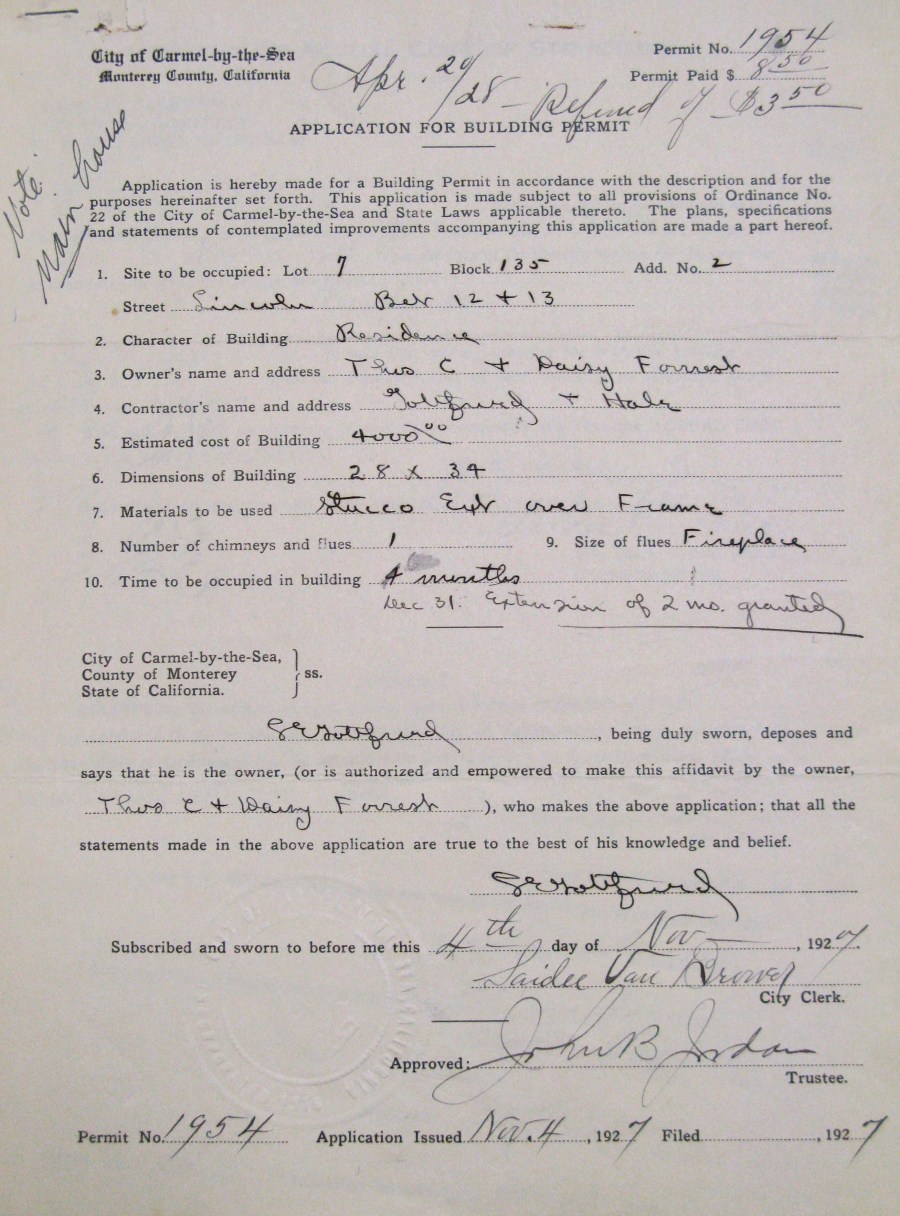 City of Carmel-by-the-Sea
Monterey County, California
Permit No. 1954
Permit Paid $ 8 50
Apr. 29/28 - Refund of $3 50
APPLICATION FOR BUILDING PERMIT
Note:
Main house
Application is hereby made for a Building Permit in accordance with the description and for the
purposes hereinafter set forth. This application is made subject to all provisions of Ordinance No.
22 of the City of Carmel-by-the-Sea and State Laws applicable thereto. The plans, specifications
and statements of contemplated improvements accompanying this application are made a part hereof.
1. Site to be occupied: Lot 7 Block 135 Add. No. 2
Street Lincoln Bet 12 + 13
2. Character of Building Residence
3. Owner's name and address Thos C + Daisy Forrest
4. Contractor's name and address Gottfried + Hale
5. Estimated cost of Building 4000 00
6. Dimensions of Building 28 x 34
7. Materials to be used Stucco Ext over Frame
8. Number of chimneys and flues 1 9. Size of flues Fireplace
10. Time to be occupied in building 4 months
Dec 31. Extension of 2 mo. granted
City of Carmel-by-the-Sea,
County of Monterey
State of California.
ss.
GE Gottfried, being duly sworn, deposes and
says that he is the owner, (or is authorized and empowered to make this affidavit by the owner,
Thos C + Daisy Forrest), who makes the above application; that all the
statements made in the above application are true to the best of his knowledge and belief.
GE Gottfried
Subscribed and sworn to before me this 4th day of Nov, 1927.
Saidee Van Brower
City Clerk.
Approved: John B Jordan
Trustee.
Permit No. 1954 Application Issued Nov. 4, 1927 Filed, 1927